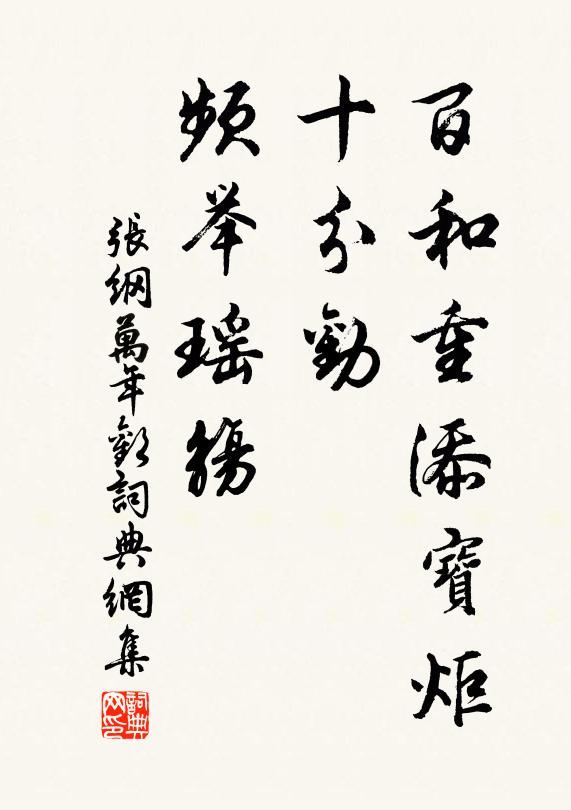 百和重添寶炬
十分勸
頻举瑶觴
張綱萬年歡詞典網集
詞典网印